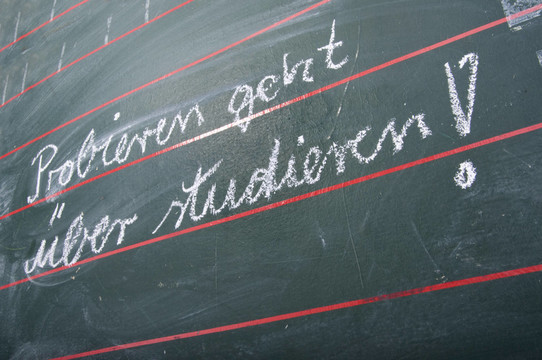 Probieren geht
über studieren!